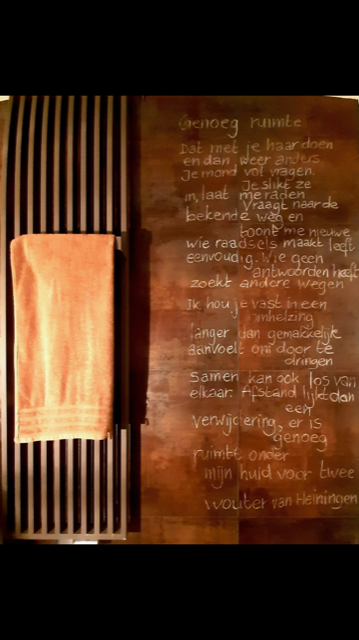 Genoeg ruimte
Dat met je haar doen
en dan weer anders
Je mond vol vragen.
Je slikt ze
in, laat me raden
Vraagt naar de
bekende weg en
toont me nieuwe
wie raadsels maakt leeft
eenvoudig. Wie geen
antwoorden heeft
zoekt andere wegen
Ik hou je vast in een
omhelzing
langer dan gemakkelijk
aanvoelt om door te
dringen
Samen kan ook los van
elkaar. Afstand lijkt dan
een
verwijdering, er is
genoeg
ruimte onder
mijn huid voor twee
Wouter van Heiningen